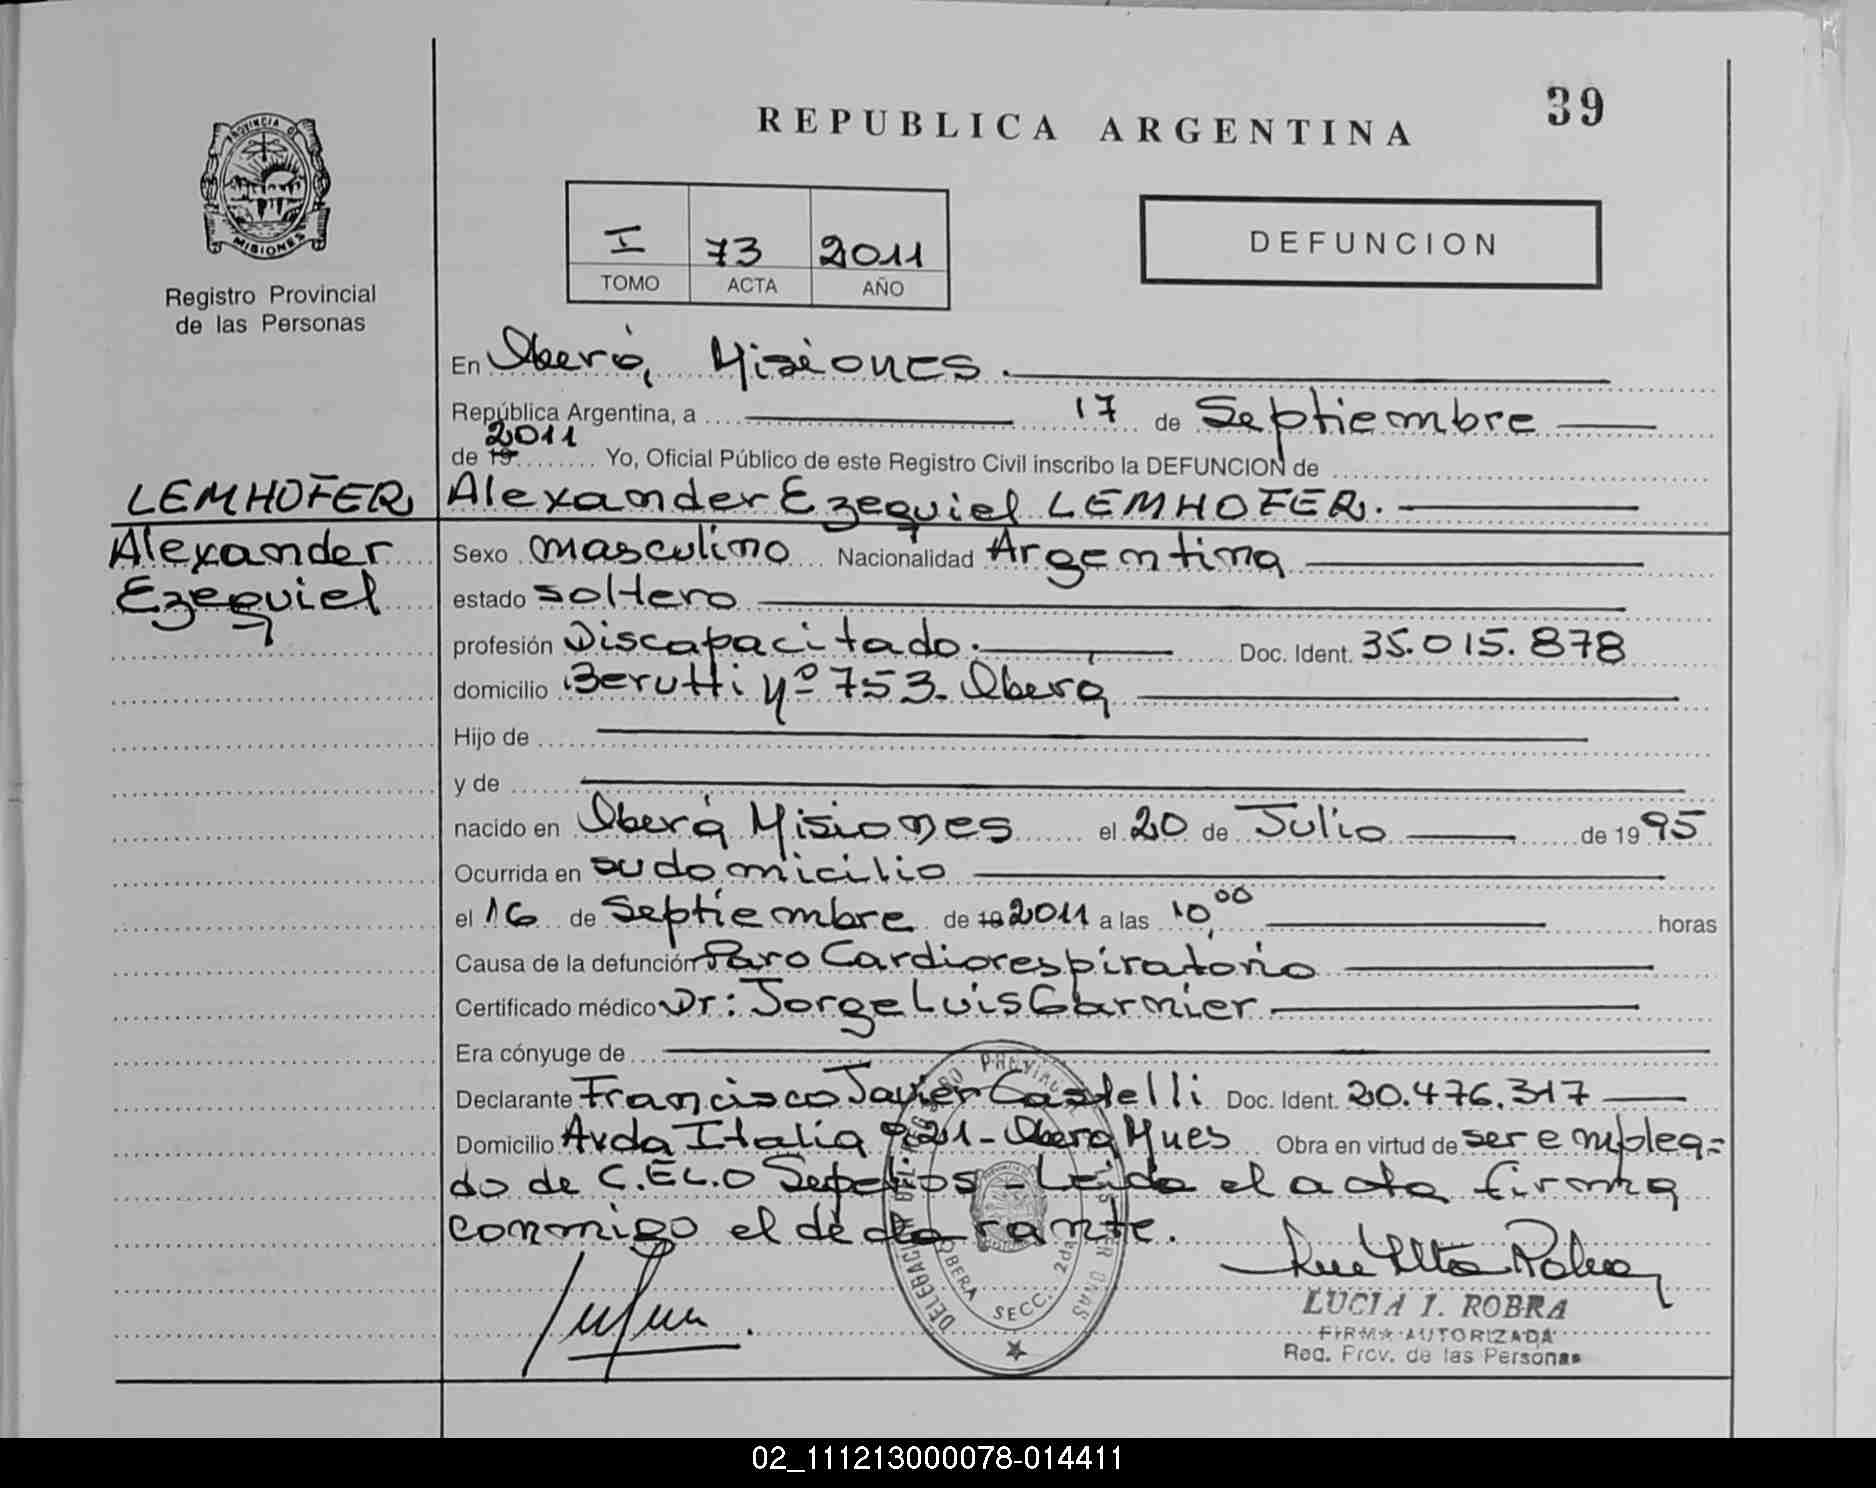 39
REPUBLICA ARGENTINA
PROVINCIA DE
MISIONES
Registro Provincial
de las Personas
I 73 2011
TOMO ACTA AÑO
DEFUNCION
En Oberá, Misiones.
República Argentina, a 17 de Septiembre
de 19 2011 Yo, Oficial Público de este Registro Civil inscribo la DEFUNCION de
LEMHOFER Alexander Ezequiel LEMHOFER.
Alexander
Ezequiel
Sexo masculino Nacionalidad Argentina
estado soltero
profesión Discapacitado. Doc. Ident. 35.015.878
domicilio Berutti Nº 753- Oberá
Hijo de
y de
nacido en Oberá Misiones el 20 de Julio de 1995
Ocurrida en su domicilio
el 16 de Septiembre de 19 2011 a las 10,00 horas
Causa de la defunción Paro Cardiorespiratorio
Certificado médico Dr: Jorge Luis Garnier
Era cónyuge de
Declarante Francisco Javier Castelli Doc. Ident. 20.476.317
Domicilio Avda Italia 921- Oberá Mnes Obra en virtud de ser emplea=
do de C.EL.O Sepelios - Leida el acta firma
conmigo el declarante.
DELEGACION DEL REGISTRO PROVINCIAL
OBERA SECC. 2da
LUCIA I. ROBRA
FIRMA AUTORIZADA
Reg. Prov. de las Personas
02_111213000078-014411